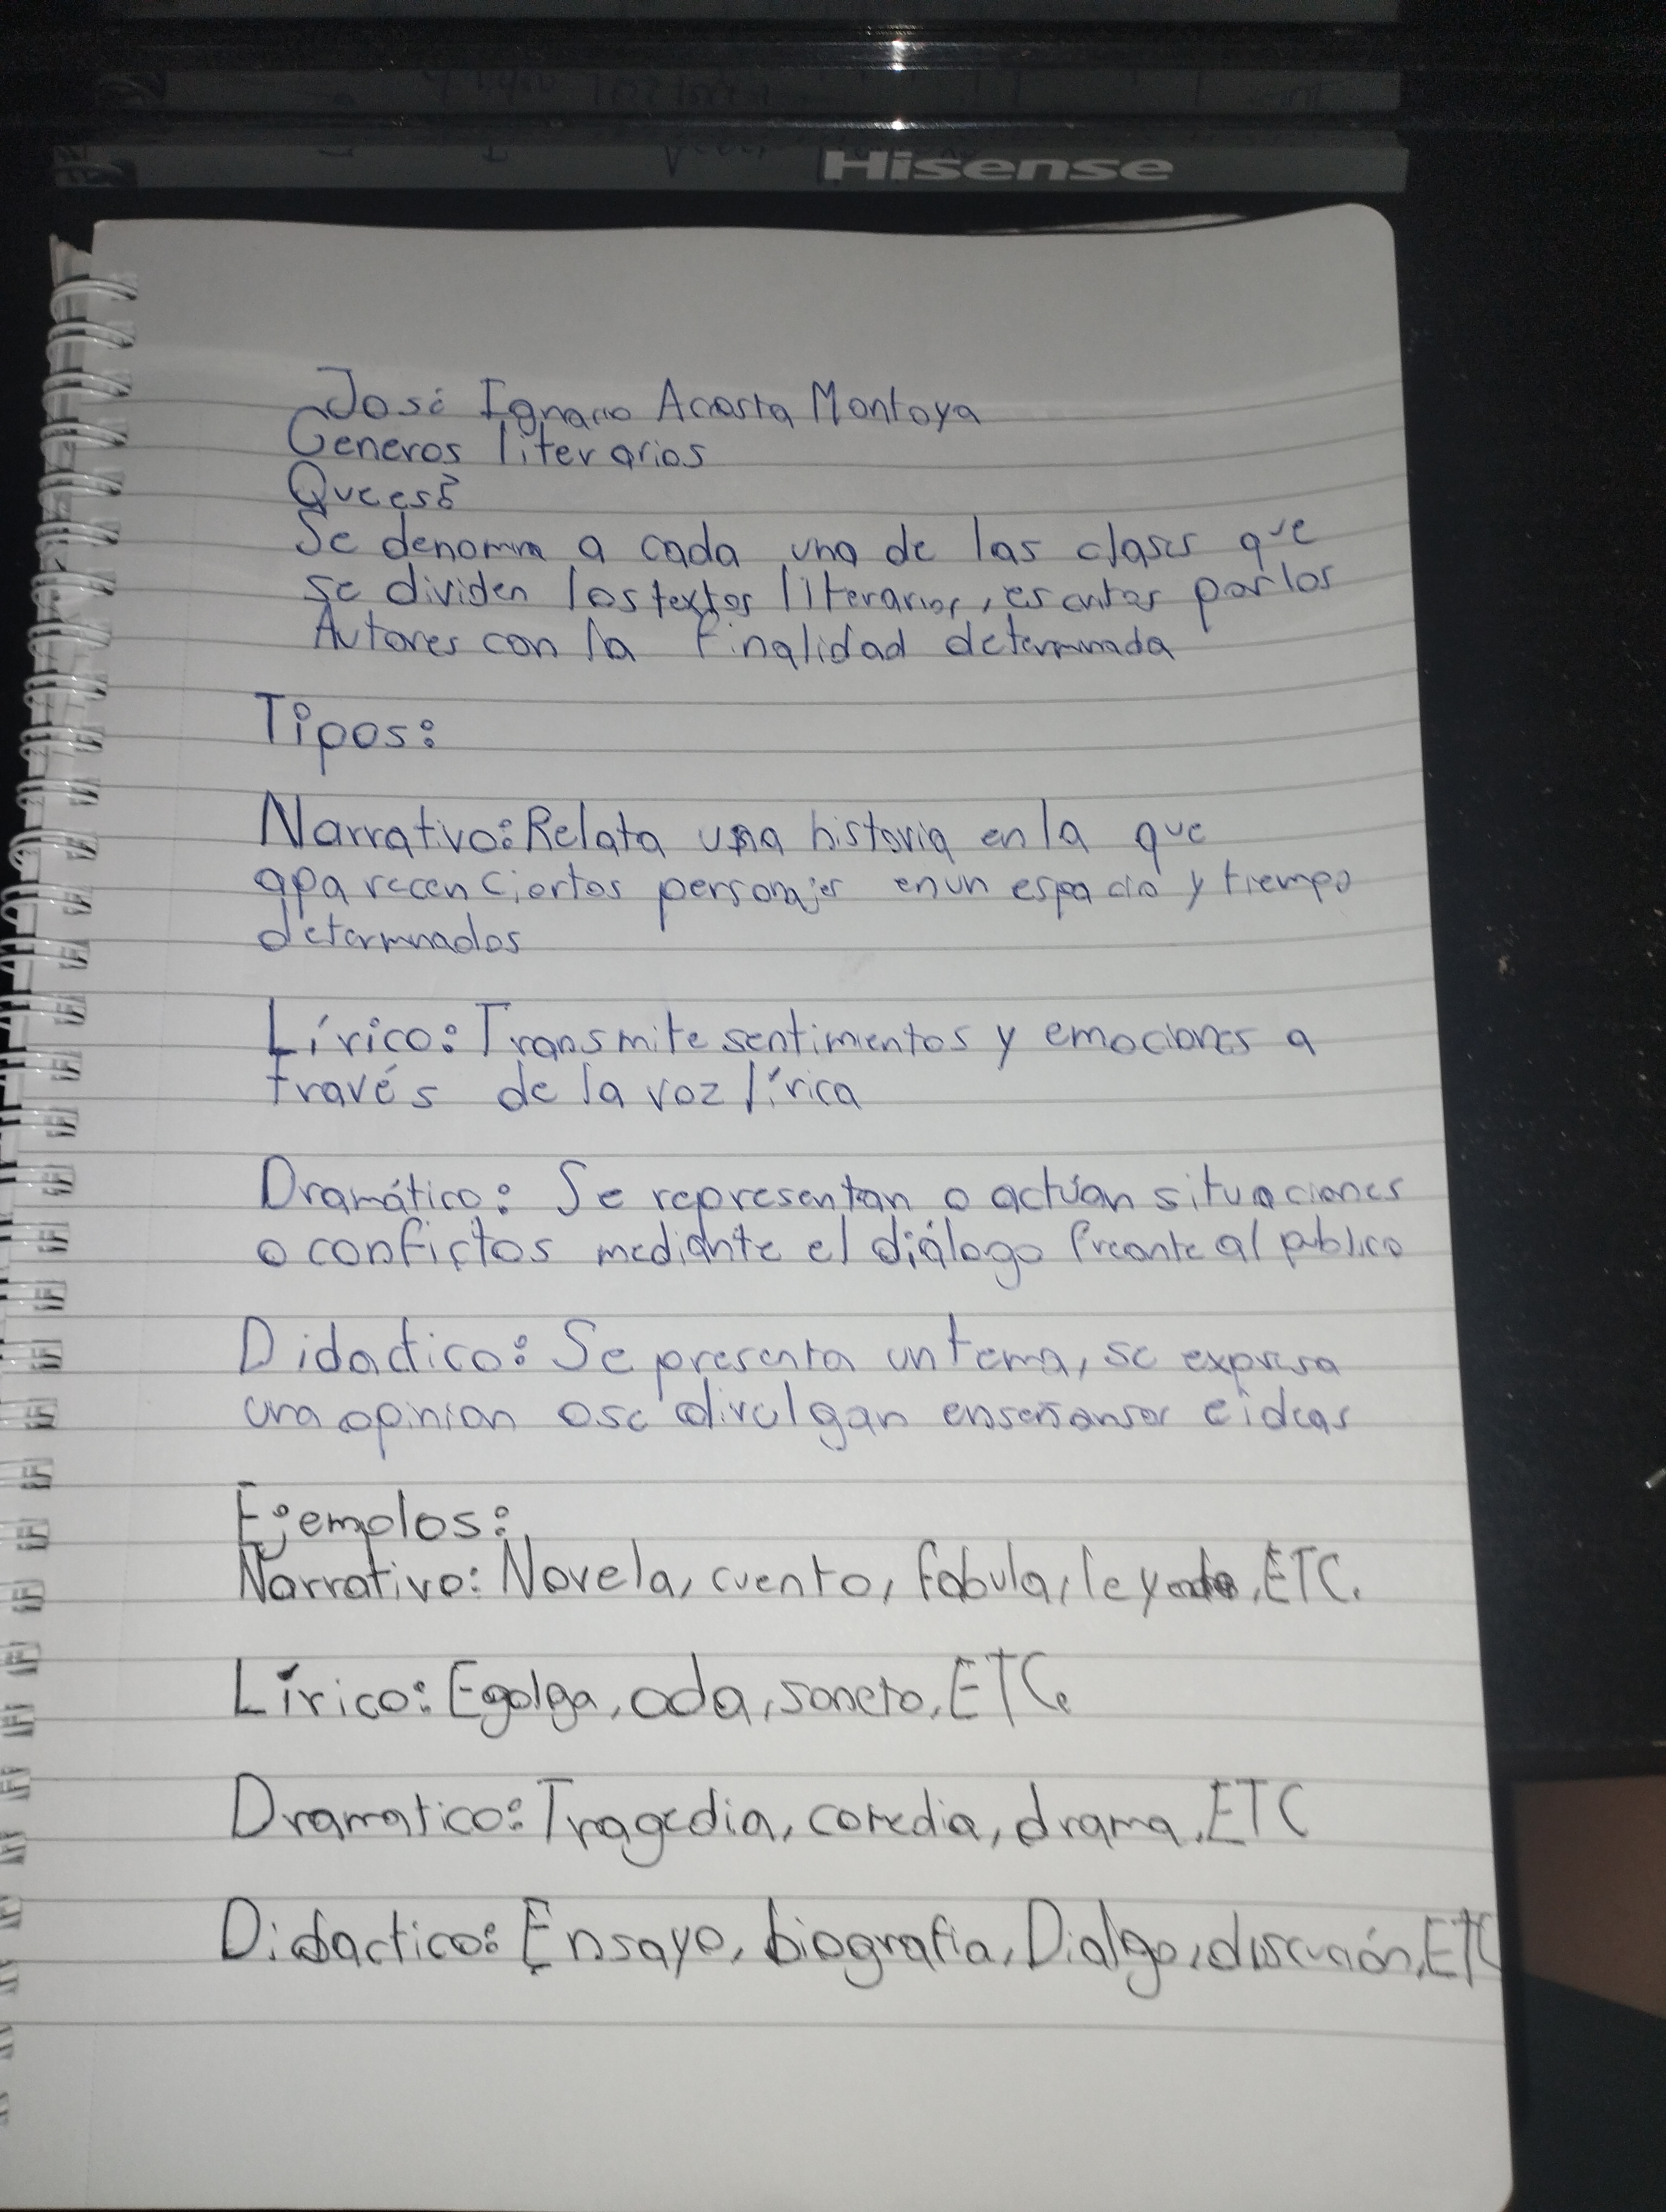 Hisense
José Ignacio Acosta Montoya
Generos literarios
Que es?
Se denomina a cada una de las clases que
se dividen los textos literarios, escritos por los
Autores con la finalidad determinada
Tipos:
Narrativo: Relata una historia en la que
aparecen ciertos personajes en un espacio y tiempo
determinados
Lírico: Transmite sentimientos y emociones a
través de la voz lírica
Dramático: Se representan o actúan situaciones
o confictos mediante el diálogo freante al publico
Didactico: Se presenta un tema, se expresa
una opinion o se divulgan enseñansas e ideas
Ejemplos:
Narrativo: Novela, cuento, fabula, leyenda, ETC.
Lírico: Egolga, oda, soneto, ETC.
Dramatico: Tragedia, comedia, drama, ETC
Didactico: Ensayo, biografia, Dialgo, discusión, ETC